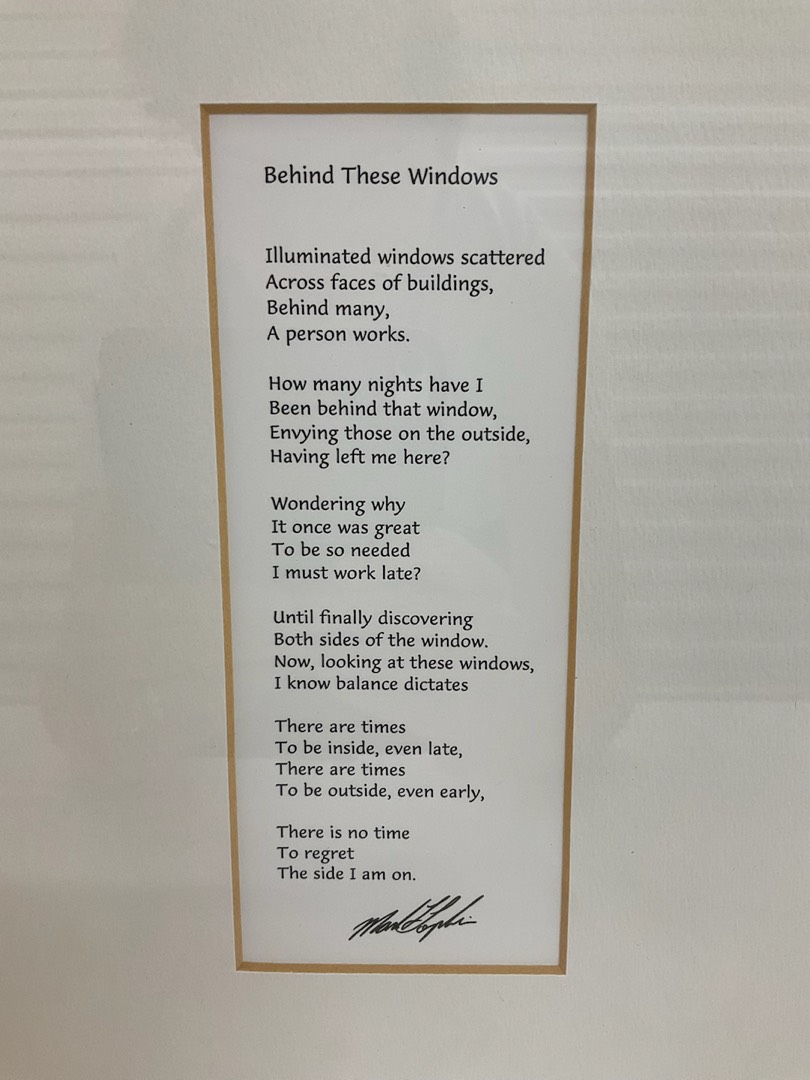 Behind These Windows
Illuminated windows scattered
Across faces of buildings,
Behind many,
A person works.
How many nights have I
Been behind that window,
Envying those on the outside,
Having left me here?
Wondering why
It once was great
To be so needed
I must work late?
Until finally discovering
Both sides of the window.
Now, looking at these windows,
I know balance dictates
There are times
To be inside, even late,
There are times
To be outside, even early,
There is no time
To regret
The side I am on.